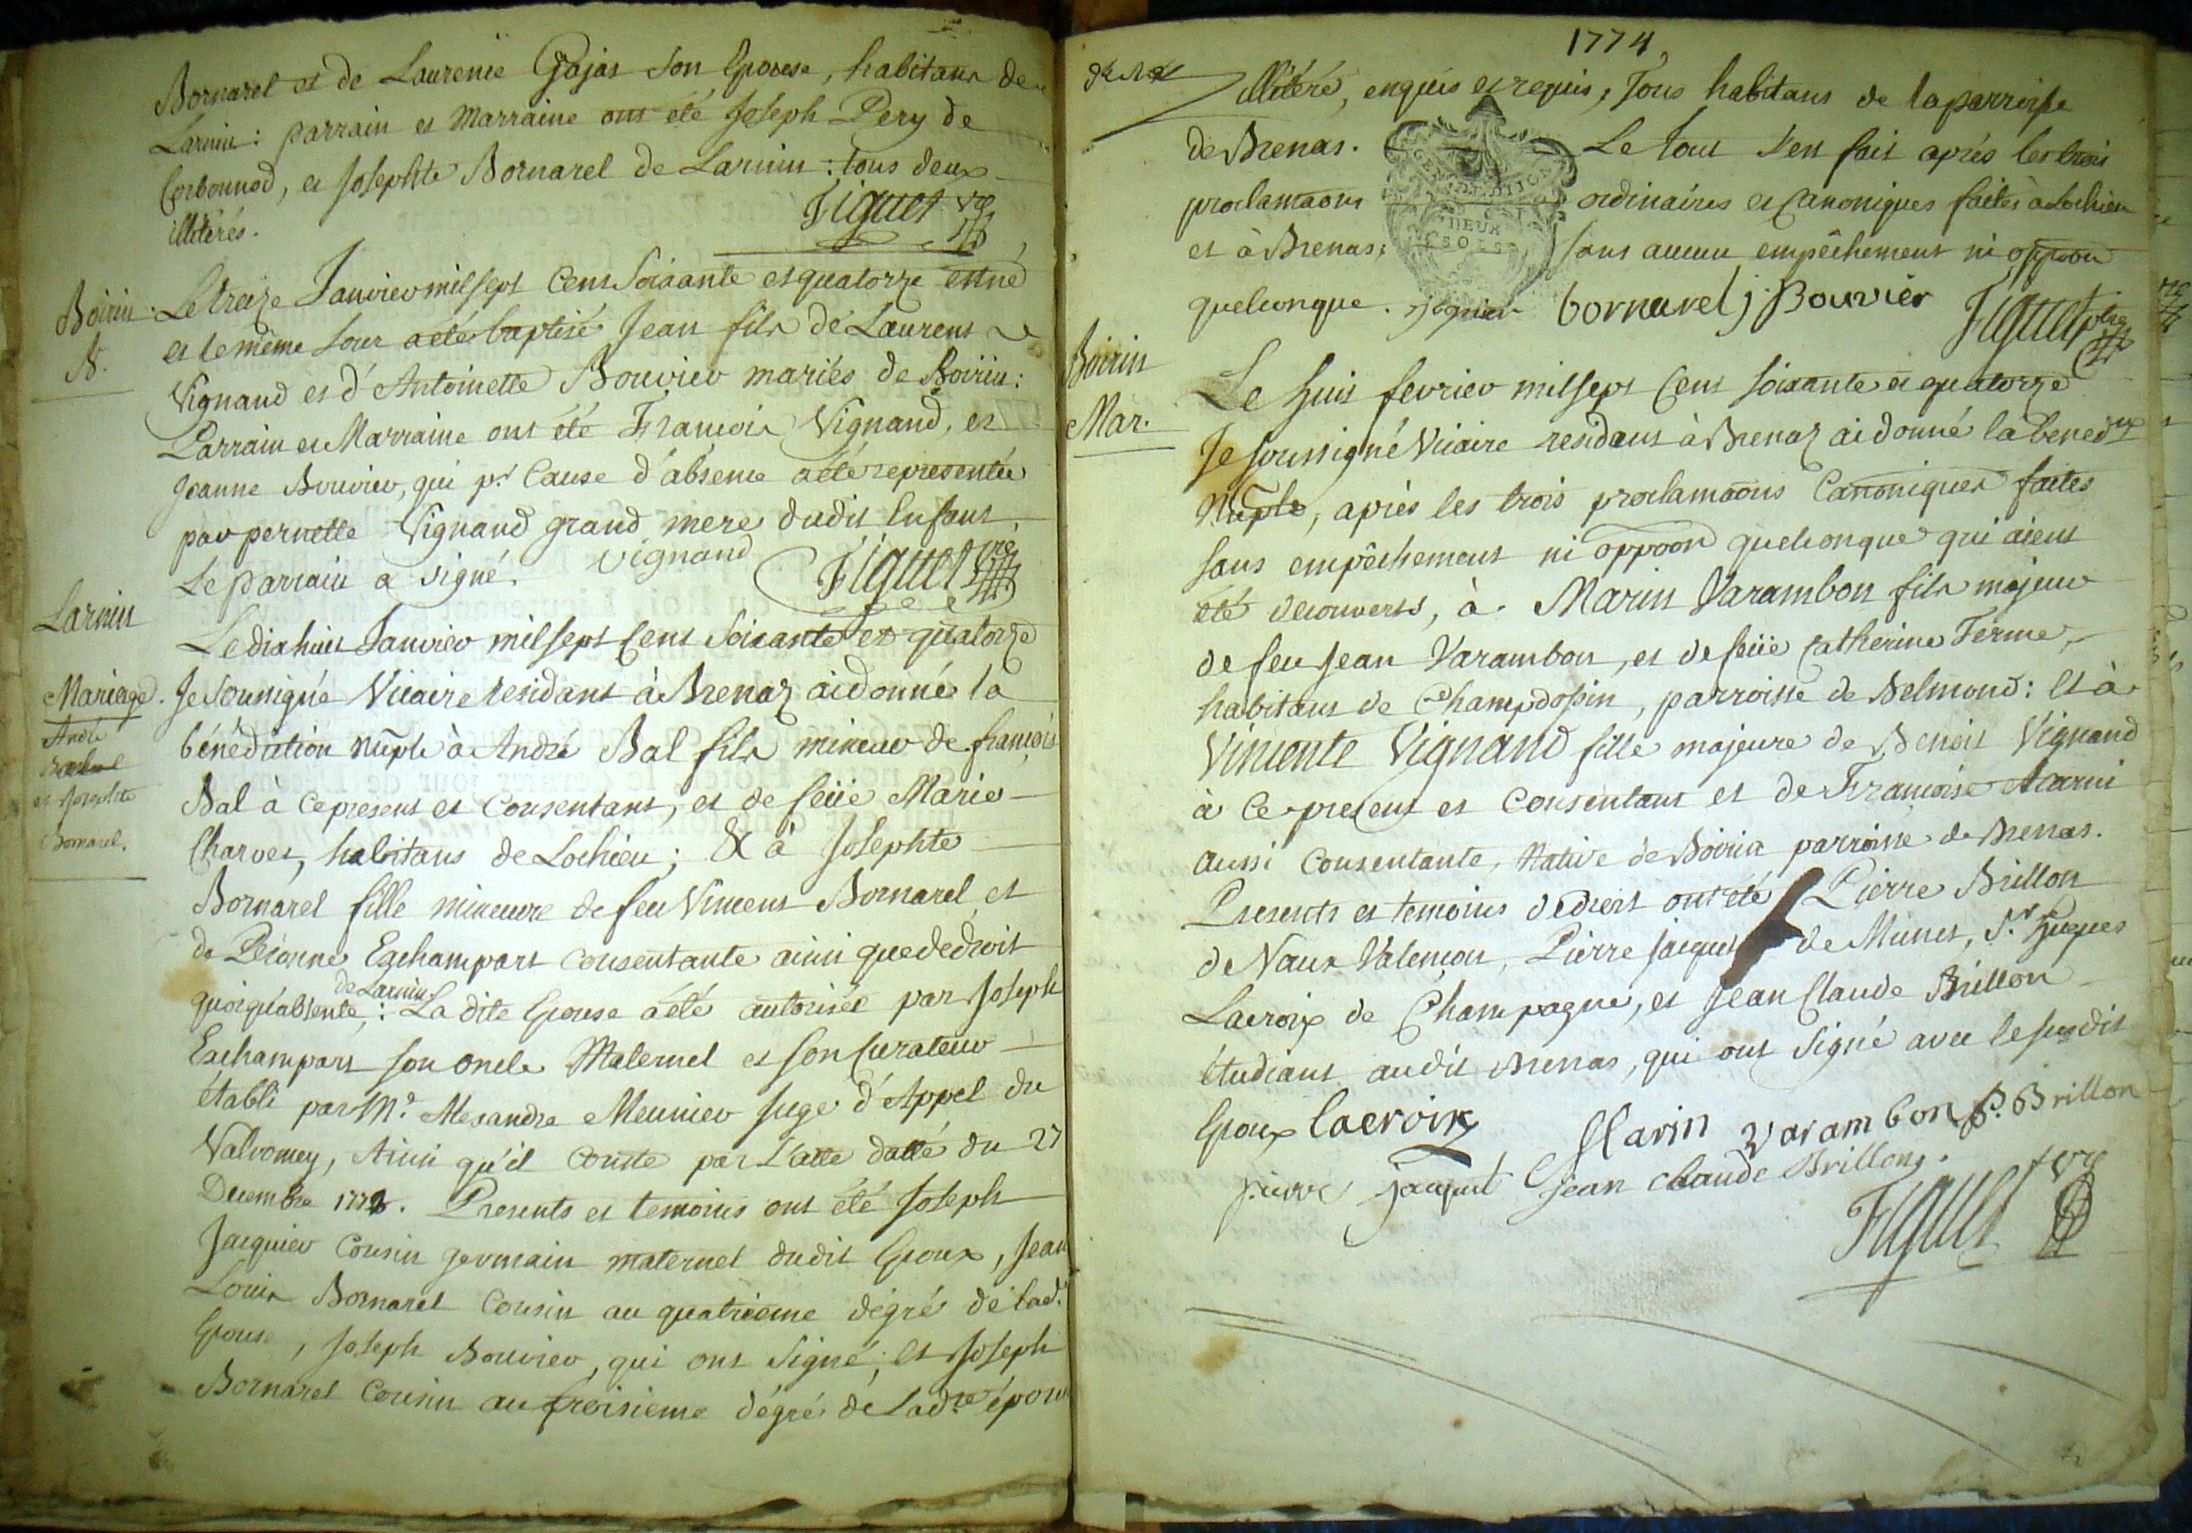 Bornarel et de Laurence Gajas son Epouse, habitans de
Larnin : parrain et Marraine ont été Joseph Pery de
Corbonod, et Josephte Bornarel de Larnin : tous deux
illitérés. Figuet vre
Boirin. N.
Le treize Janvier mil sept Cent Soixante et quatorze est né
et le même Jour a été baptisé Jean fils de Laurens
Vignand et d'Antoinette Bouvier mariés de Boirin :
Parrain et Marraine ont été François Vignand, et
Jeanne Bouvier, qui pr. Cause d'absence a été representée
par pernette Vignand grand mere dudit Enfant,
Le parrain a signé. Vignand Figuet vre
Larnin
Mariage.
André
Bal
et Josephte
Bornarel.
Le dix huit Janvier mil sept Cent Soixante et quatorze
Je Soussigné Vicaire residant à Brenaz ai donné la
bénédiction nuple à André Bal fils mineur de françois
Bal à ce present et Consentant, et de feüe Marie
Charvet, habitans de Lochieu ; & à Josephte
Bornarel fille mineure de feu Vincent Bornarel et
de Eschampart consentante ainsi que de droit
quoiqu'absente, de Larnin : La dite Epouse a été autorisée par Joseph
Eschampart son oncle Maternel et son Curateur
établi par Mr. Alexandre Meunier Juge d'Appel du
Valromey, Ainsi qu'il Conste par L'acte datté du 27
Decembre 1773. Presents et temoins ont été Joseph
Jacquier cousin germain maternel dudit Epoux, Jean
Louis Bornarel Cousin au quatrieme dégré de lad.
Epouse, Joseph Bouvier, qui ont signé ; et Joseph
Bornarel Cousin au troisieme dégré de Ladte épouse
1774.
illitéré, enquis et requis, Tous habitans de la parroisse
de Brenas. Le Tout s'en fait après les trois
proclamaons ordinaires et Canoniques faites à Lochieu
et à Brenas, sans aucun empêchement ni oppoon
quelconque. bornarel j. Bouvier Figuet vre
GENERALITE DE DIJON
DEUX SOLS
Boirin
Mar.
Le huit fevrier mil sept Cent soixante et quatorze
Je soussigné Vicaire residant à Brenaz ai donné la benedon
Nuple, après les trois proclamaons Canoniques faites
sans empêchement ni oppoon quelconque qui aient
été decouverts, à Marin Varambon fils majeur
de feu Jean Varambon, et de feüe Catherine Ferme,
habitans de Champdossin, parroisse de Belmond : Et à
Vincente Vignand fille majeure de Benoit Vignand
à Ce present et Consentant et de Françoise
aussi Consentante, Native de Boirin parroisse de Brenas.
Presents et temoins de droit ont été Pierre Brillon
de Vaux Valençon, Pierre Jacquet de Munet, Sr. hugues
Lacroix de Champagne, et Jean Claude Brillon
étudiant audit Brenas, qui ont signé avec le susdit
Epoux Lacroix Marin varambon P. Brillon
pierre jacquet jean claude Brillon.
Figuet vre